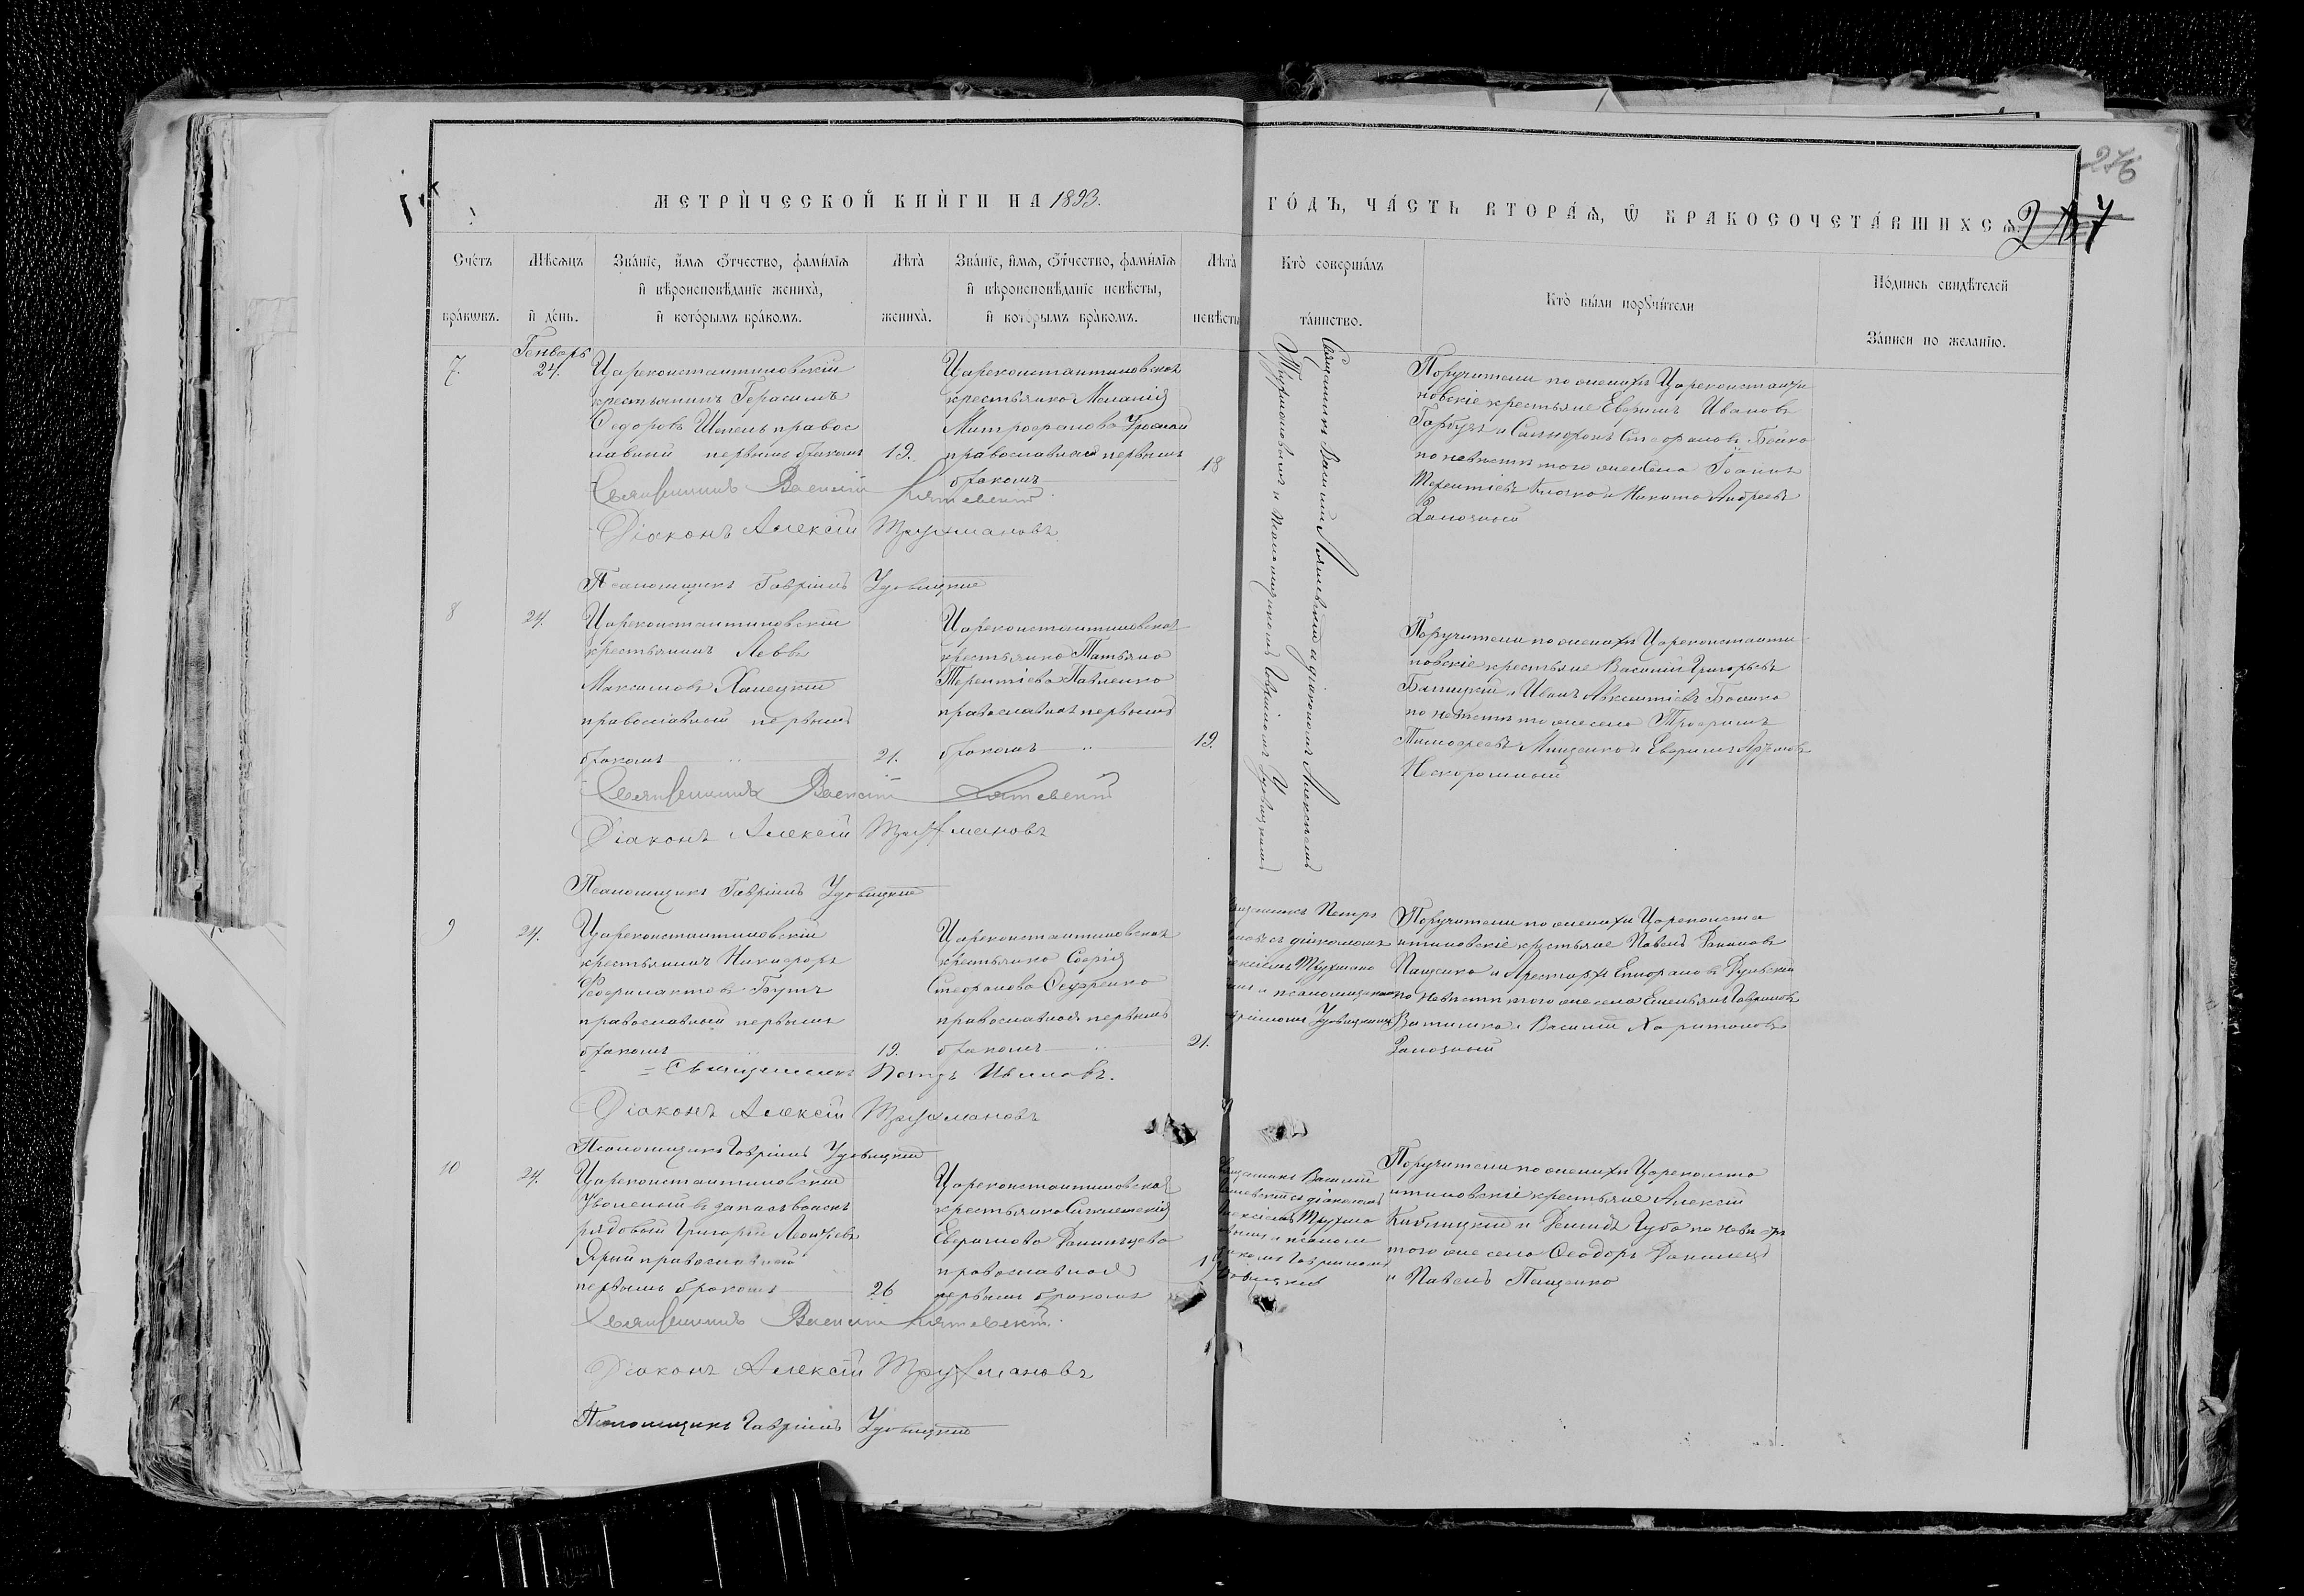 276
МЕТРИ́ЧЕСКОЙ КНИ́ГИ НА 1893.
ГО́ДЪ, ЧА́СТЬ ВТОРА́Ѧ, Ѿ БРАКОСОЧЕТА́ВШИХСѦ.
Сче́тъ
бра́кѡвъ.
Мѣ́сѧцъ
и҆ де́нь.
Зва́нїе, и҆́мѧ ѻ҆́тчество, фами́лїѧ
и҆ вѣроисповѣ́данїе жениха̀,
и҆ кото́рымъ бра́комъ.
Лѣта̀
жениха̀.
Зва́нїе, и҆́мѧ, ѻ҆́тчество, фами́лїѧ
и҆ вѣроисповѣ́данїе невѣ́сты,
и҆ кото́рымъ бра́комъ.
Лѣта̀
невѣ́сты
Кто̀ соверша́лъ
та́инство.
Кто̀ бы́ли порꙋчи́тели
По́дпись свидѣ́телей
За́писи по жела́нїю.
7.
Генварь
24.
Цареконстантиновскій
крестьянинъ Герасимъ
Ѳедоровъ Шепель правос
лавный первымъ бракомъ
19.
Цареконстантиновская
крестьянка Меланія
Митрофанова
православная первымъ
бракомъ
18
Священникъ Василій Лятевскій съ діакономъ Алексіемъ
Трухмановымъ и Псаломщикомъ Гавріиломъ Удовицкимъ
Поручители по женихѣ Цареконстанти
новскіе крестьяне Евфимъ Ивановъ
Гарбузъ и Стефановъ Бойко
по невѣстѣ того же села Іоаннъ
Терентіевъ Клочко и Никита Андреевъ
Замочный
Священникъ Василій Лятевскій
Діаконъ Алексій Трухмановъ
Псаломщикъ Гавріилъ Удовицкій
8
24.
Цареконстантиновскій
крестьянинъ Левъ
Максимовъ Ханецкій
православный первымъ
бракомъ
21.
Цареконстантиновская
крестьянка Татьяна
Терентіева Павленко
православная первымъ
бракомъ
19.
Поручители по женихѣ Цареконстанти
новскіе крестьяне Василій Григорьевъ
Билицкій и Иванъ Авксентіевъ
по невѣстѣ то же села Трофимъ
Тимофеевъ Мищенко и Евфимъ
Нехорошный
Священникъ Василій Лятевскій
Діаконъ Алексій Трухмановъ
Псаломщикъ Гавріилъ Удовицкій
9
24.
Цареконстантиновскій
крестьянинъ Никифоръ
Феофилактовъ Бутъ
православный первымъ
бракомъ
19.
Цареконстантиновская
крестьянка Софія
Стефанова
православная первымъ
бракомъ
21.
Петръ
съ діакономъ
Трухмано
и псаломщикомъ
Удовицкимъ
Поручители по женихѣ Цареконста
нтиновскіе крестьяне Павелъ
Пащенко и Аристархъ
по невѣстѣ того же села Емельянъ Гавриловъ
и Василій Харитоновъ
Замочный
Священникъ Петръ Ивановъ.
Діаконъ Алексій Трухмановъ
Псаломщикъ Гавріилъ Удовицкій
10
24.
Цареконстантиновскій
уволеный въ запасъ войскъ
рядовый Григорій Леонтіевъ
Ярый православный
первымъ бракомъ
26
Цареконстантиновская
крестьянка
Евфимова Данильцева
православная
первымъ бракомъ
Василій
съ діакономъ
Трухмано
Поручители по женихѣ Цареконста
нтиновскіе крестьяне Алексій
и Демидъ Губа по невѣстѣ
того же села Ѳеодоръ Данилецъ
и Павелъ Пащенко
Священникъ Василій Лятевскій
Діаконъ Алексій Трухмановъ
Псаломщикъ Гавріилъ Удовицкій